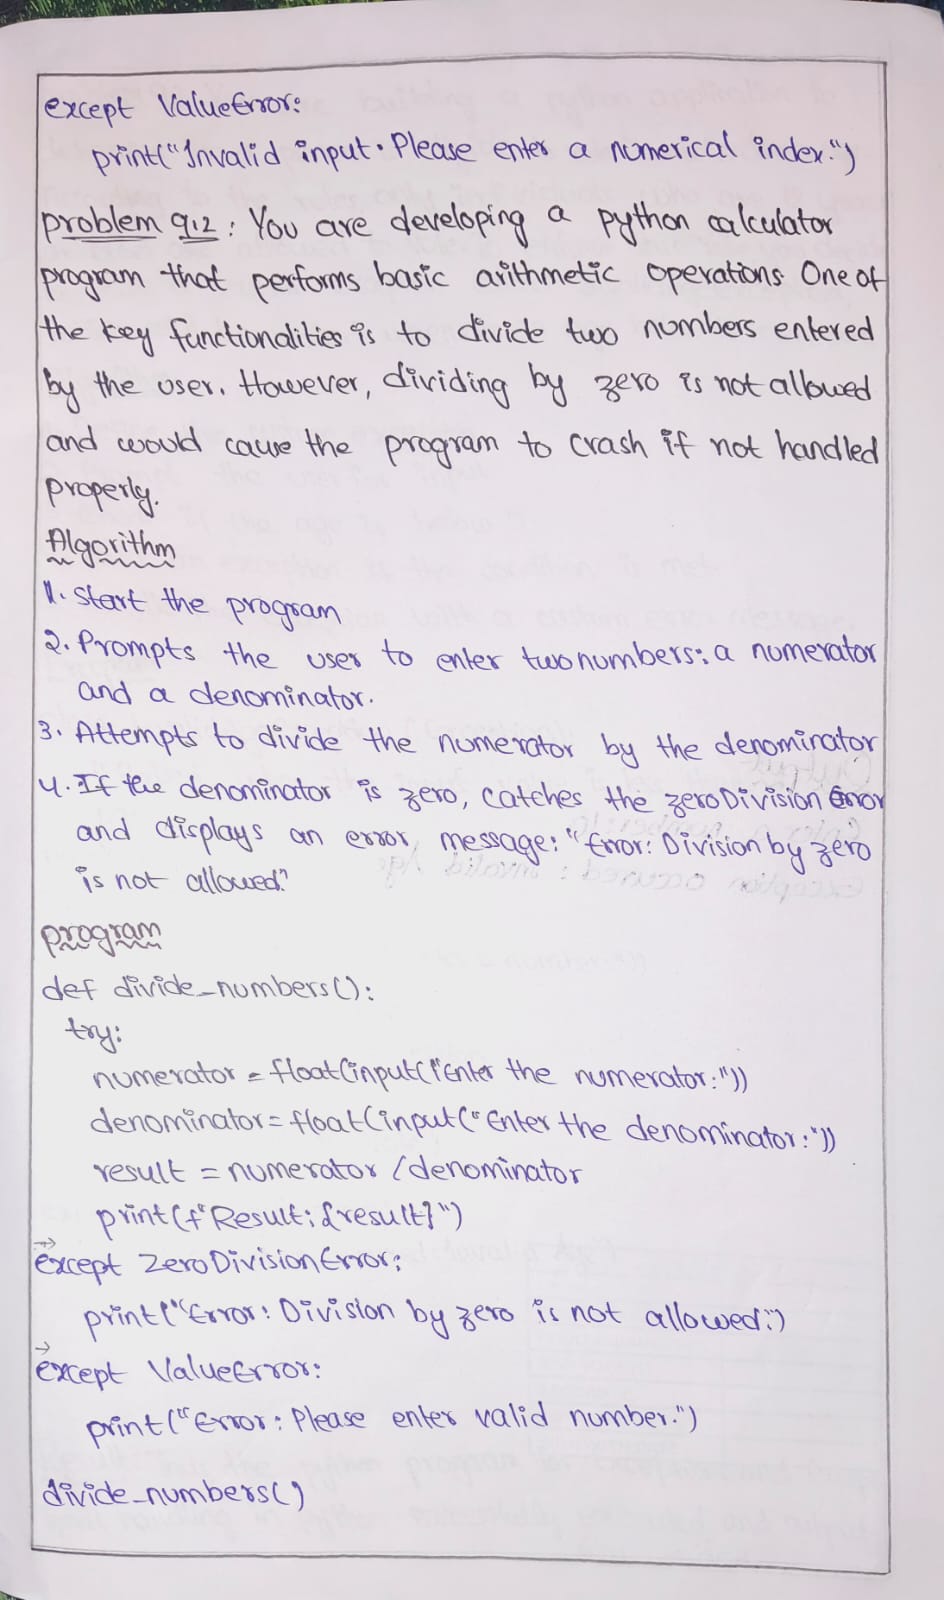 except ValueError:
print("Invalid input. Please enter a numerical index.")
problem 9.12 : You are developing a python calculator
program that performs basic arithmetic operations One of
the key functionalities is to divide two numbers entered
by the user. However, dividing by zero is not allowed
and would cause the program to crash if not handled
properly.
Algorithm
1. Start the program
2. Prompts the user to enter two numbers: a numerator
and a denominator.
3. Attempts to divide the numerator by the denominator
4. If the denominator is zero, catches the zeroDivision Error
and displays an error message: "Error: Division by zero
is not allowed."
program
def divide_numbers():
try:
numerator = float(input("Enter the numerator:"))
denominator = float(input("Enter the denominator:"))
result = numerator / denominator
print(f"Result: {result}")
→
except ZeroDivisionError:
print("Error: Division by zero is not allowed.")
→
except ValueError:
print("Error: Please enter valid number.")
divide_numbers()